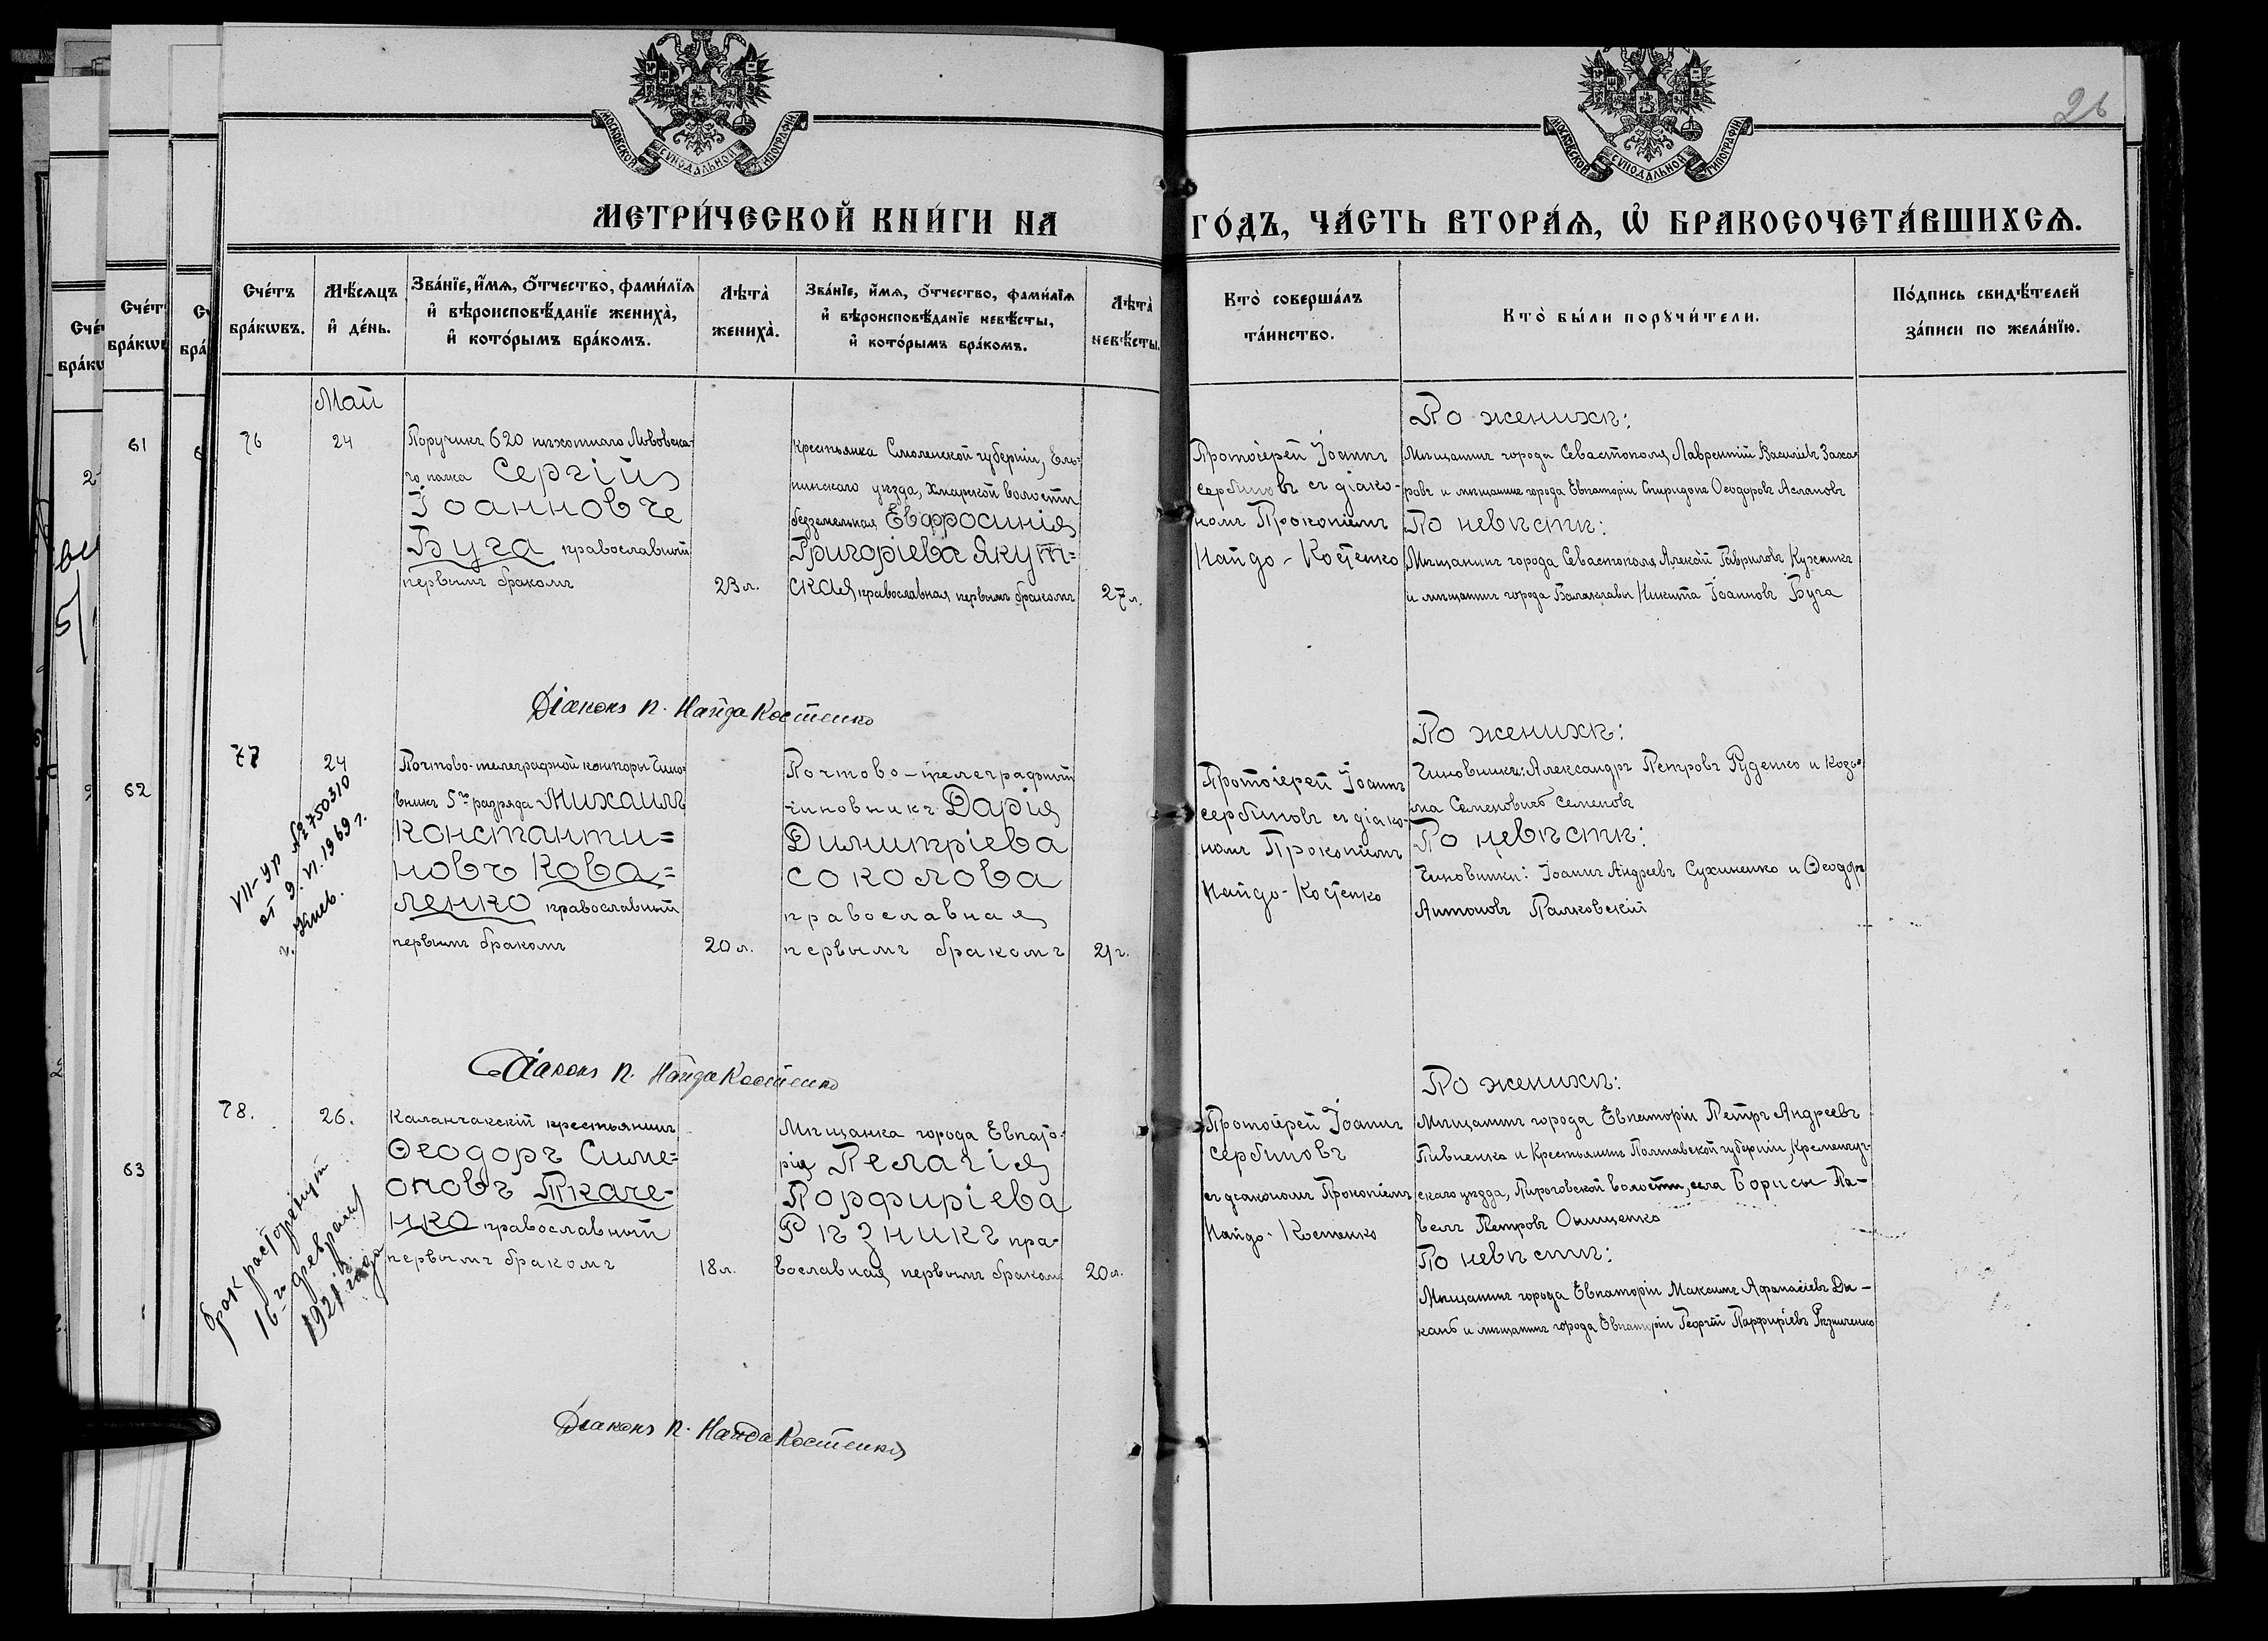 26
МОСКОВСКОЙ СѴНОДАЛЬНОЙ ТИПОГРАФІИ
МОСКОВСКОЙ СѴНОДАЛЬНОЙ ТИПОГРАФІИ
МЕТРИ́ЧЕСКОЙ КНИ́ГИ НА
ГО́ДЪ, ЧА́СТЬ ВТОРА́Ѧ, Ѡ҆ БРАКОСОЧЕТА́ВШИХСѦ.
Сче́тъ
бра́кѡвъ.
Мѣ́сяцъ
и҆ де́нь.
Зва́нїе, и҆́мѧ, ѻ҆́тчество, фами́лїѧ
и҆ вѣроисповѣ́данїе жениха̀,
и҆ кото́рымъ бра́комъ.
Лѣта̀
жениха̀.
Зва́нїе, и҆́мѧ, ѻ҆́тчество, фами́лїѧ
и҆ вѣроисповѣ́данїе невѣ́сты,
и҆ кото́рымъ бра́комъ.
Лѣта̀
невѣ́сты.
Кто̀ соверша́лъ
та́инство.
Кто̀ бы́ли порꙋчи́тели.
По́дпись свидѣ́телей
за́писи по жела́нїю.
Май
76
24
Поручикъ 620 пѣхотнаго Львовска-
го полка Сергій
Іоанновъ
Буга православный
первымъ бракомъ
23 л.
Крестьянка Смоленской губерніи, Ель-
нинскаго уѣзда, Хмарской волости
безземельная Евфросинія
Григоріева Якут=
ская православная первымъ бракомъ
27 л.
Протоіерей Іоаннъ
Сербиновъ съ діако-
номъ Прокопіемъ
Найдо-Костенко
По женихѣ:
Мѣщанинъ города Севастополя Лаврентій Василіевъ Заха-
ровъ и мѣщанинъ города Евпаторіи Спиридонъ Ѳеодоровъ Аслановъ
По невѣстѣ:
Мѣщанинъ города Севастополя Алексій Гавриловъ
и мѣщанинъ города Балаклавы Никита Іоанновъ Буга
Діаконъ П. Найда Костенко
77
24
Почтово-телеграфной конторы Чино-
вникъ 5го разряда Михаилъ
Константи=
новъ Кова=
ленко православный
первымъ бракомъ
20 л.
Почтово-телеграфный
чиновникъ Дарія
Димитріева
Соколова
православная
первымъ бракомъ
21 г.
Протоіерей Іоаннъ
Сербиновъ съ діако-
номъ Прокопіемъ
Найдо-Костенко
По женихѣ:
Чиновники: Александръ Петровъ Руденко и Козь-
ма Семеновичъ Семеновъ
По невѣстѣ:
Чиновники: Іоаннъ Андреевъ Сухиненко и Ѳеодоръ
Антоновъ Палковскій
VII-УР №750310
от 9.VI.1969 г.
г. Киев.
Діаконъ П. Найда Костенко
78.
26.
Каланчакскій крестьянинъ
Ѳеодоръ Симе=
оновъ Ткаче-
нко православный
первымъ бракомъ
18 л.
Мѣщанка города Евпато-
ріи Пелагія
Порфиріева
Рѣзникъ пра-
вославная первымъ бракомъ
20 л.
Протоіерей Іоаннъ
Сербиновъ
съ діакономъ Прокопіемъ
Найдо-Костенко
По женихѣ:
Мѣщанинъ города Евпаторіи Петръ Андреевъ
Пивненко и Крестьянинъ Полтавской губерніи, Кременчуг-
скаго уѣзда, Пироговской волости, села Борисы Па-
велъ Петровъ Онищенко
По невѣстѣ:
Мѣщанинъ города Евпаторіи Максимъ Афанасіевъ Ди-
канъ и мѣщанинъ города Евпаторіи Георгій Парфиріевъ Рѣзниченко
брак расторгнут
16-го февраля
1921 года
Діаконъ П. Найда Костенко
61
62
63